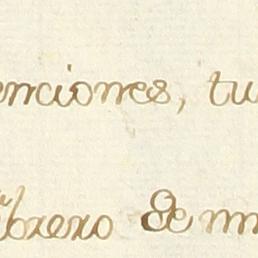 enciones, tu
brero de m